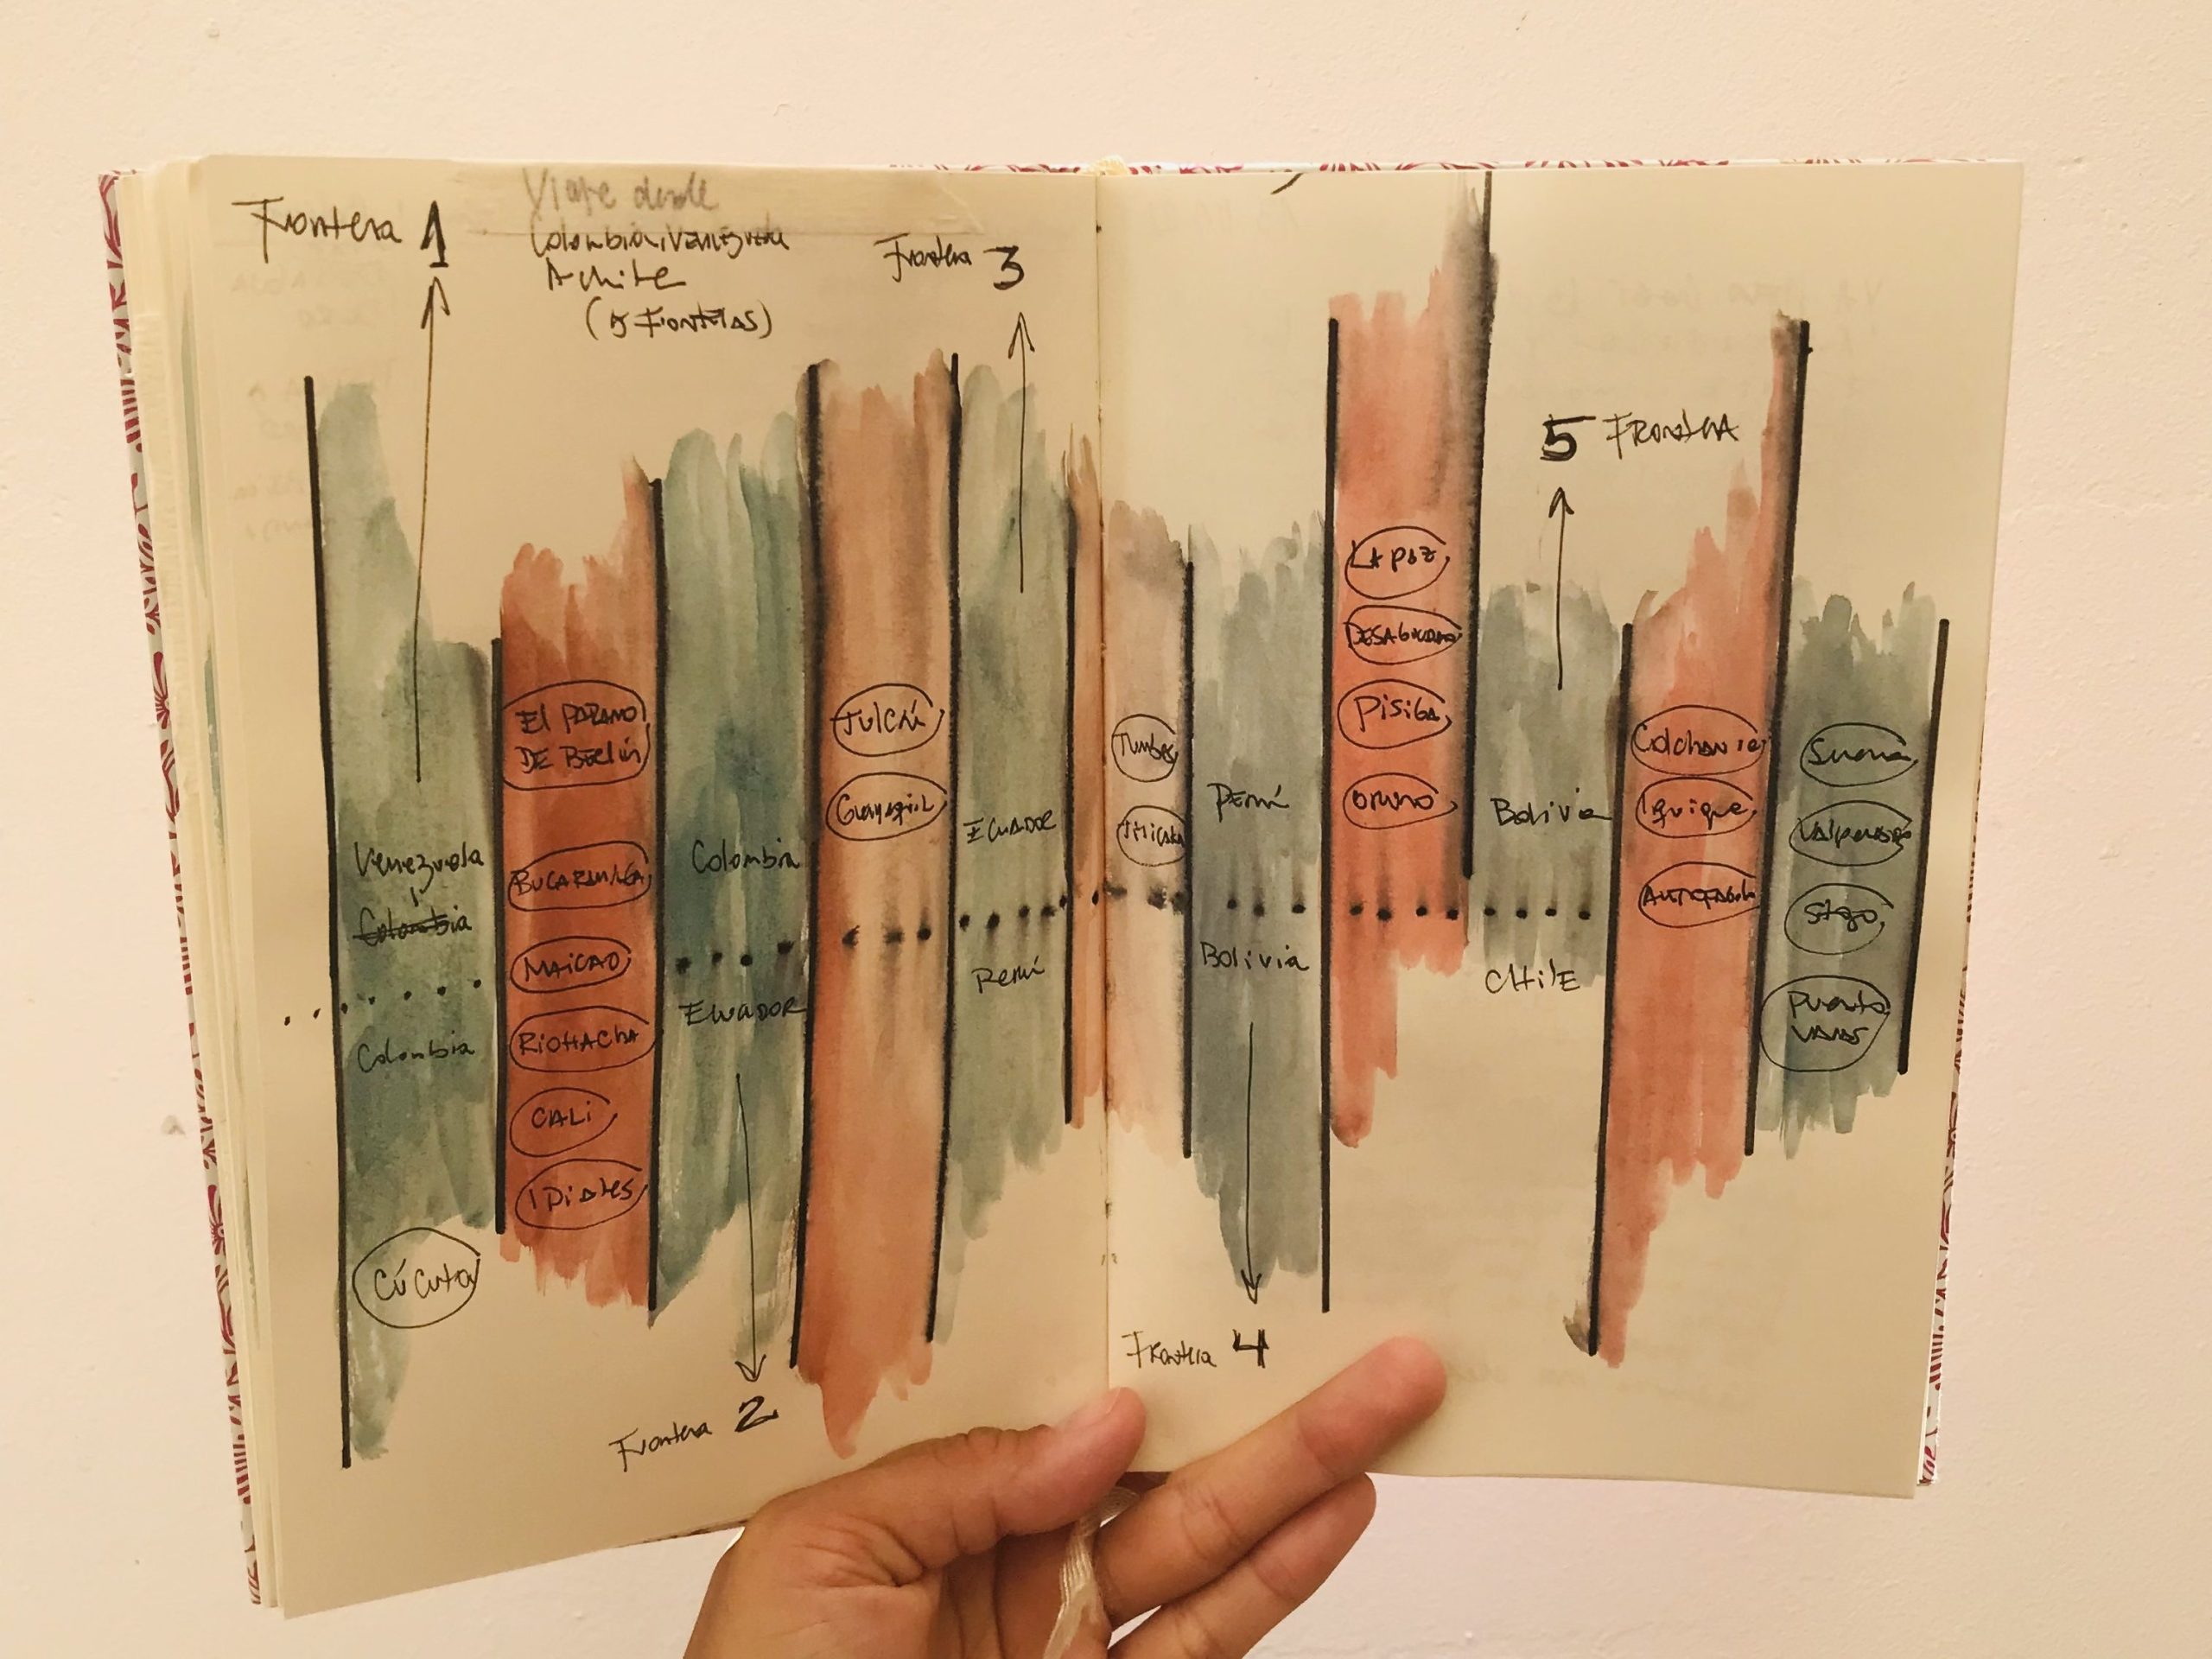 Frontera 1
Viaje desde
Colombia, Venezuela
A chile
(5 Fronteras)
Frontera 3
Venezuela
Colombia
Colombia
Cúcuta
El PARAMO
DE BERlin
BUCARAMANGA
MAICAO
RIOHACHA
CALi
IPiAles
Colombia
Ecuador
Frontera 2
TulcÁn
Guayaquil
ECUADOR
Perú
Tumbes
Titicaca
PERú
Bolivia
Frontera 4
LA PAZ
DESAGUADERO
PisigA
ORURO
5 FRONTERA
Bolivia
CHilE
Colchane
Iquique
Antofagasta
Valparaiso
Stgo
Puerto
VARAS